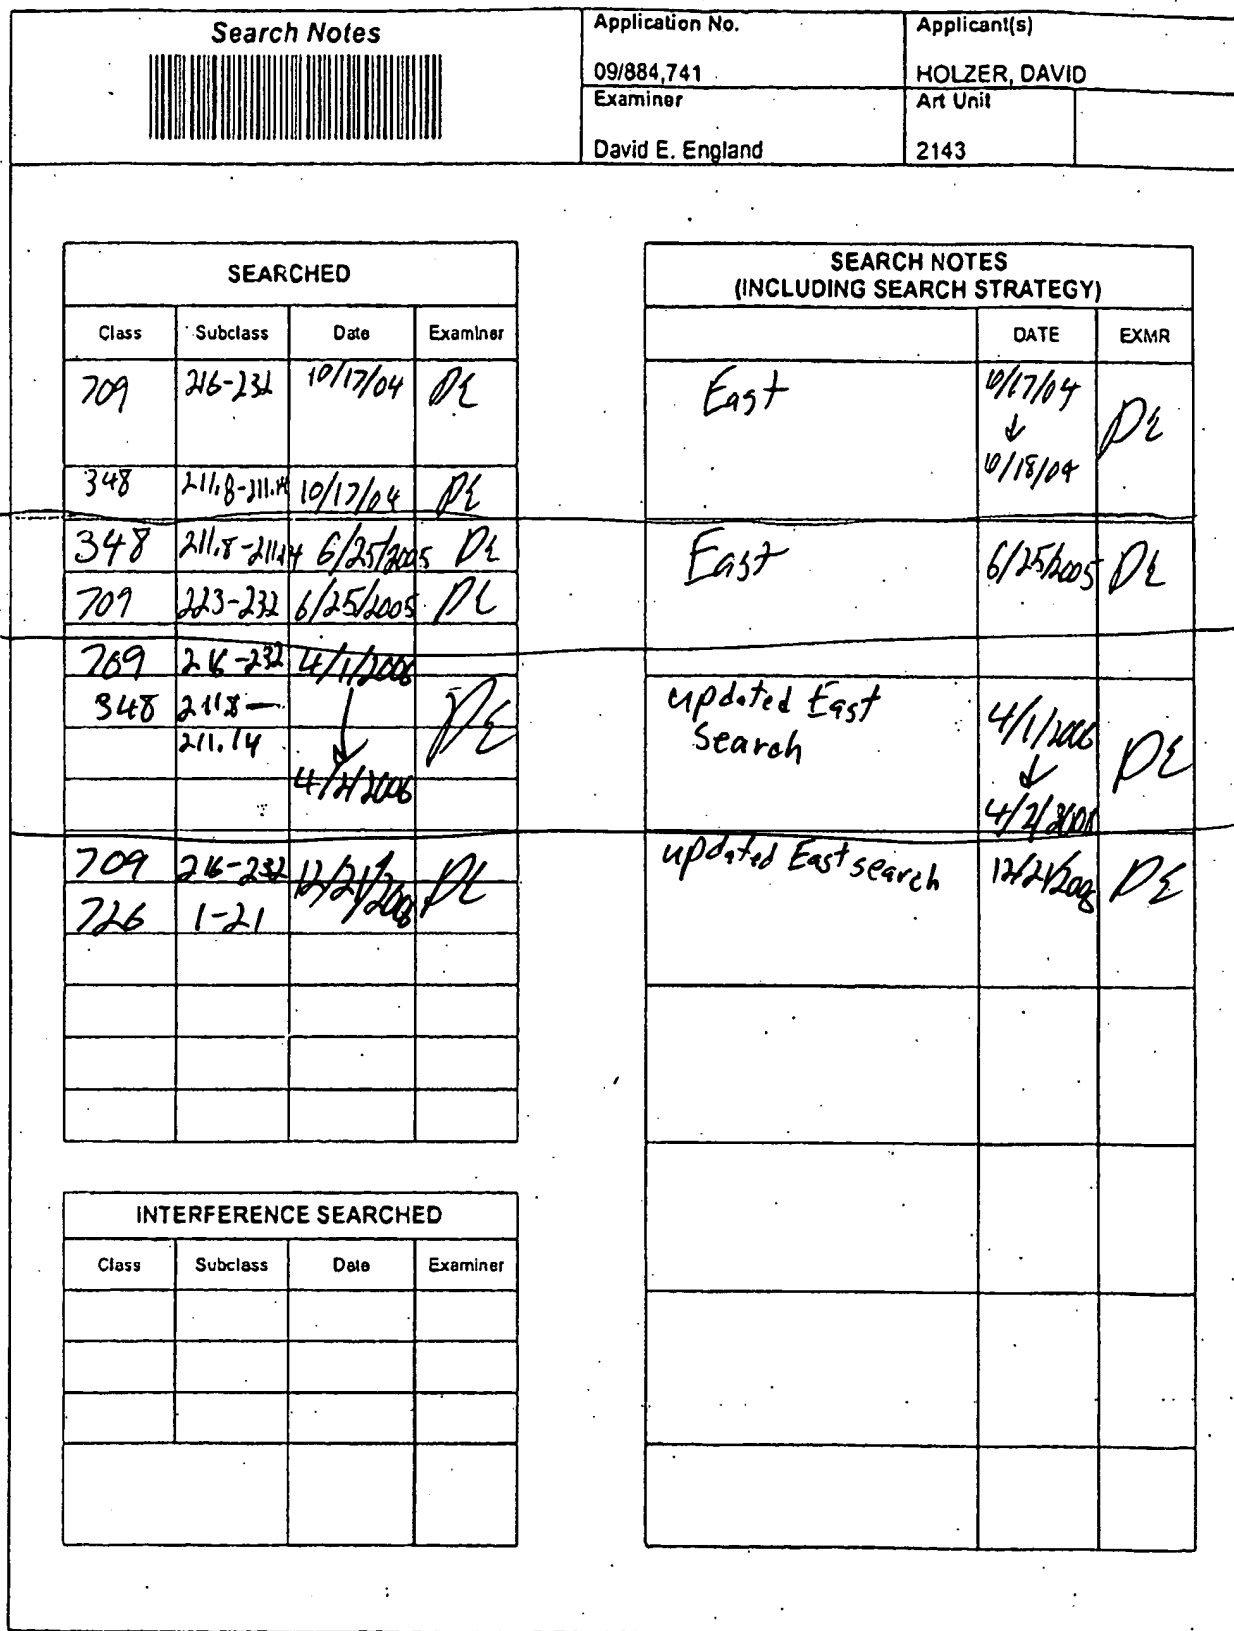 Search Notes
Application No.
09/884,741
Applicant(s)
HOLZER, DAVID
Examiner
David E. England
Art Unit
2143
SEARCHED
Class Subclass Date Examiner
709 216-232 10/17/04 DE
348 211.8-211.14 10/17/04 DE
348 211.8-211.14 6/25/2005 DE
709 223-232 6/25/2005 DE
709 216-232 4/1/2006
348 211.8— DE
211.14
↓
4/2/2006
709 216-232 12/21/2006 DE
726 1-21
INTERFERENCE SEARCHED
Class Subclass Date Examiner
SEARCH NOTES
(INCLUDING SEARCH STRATEGY)
DATE EXMR
East 10/17/04 DE
↓
10/18/04
East 6/25/2005 DE
updated East
Search 4/1/2006 DE
↓
4/2/2006
updated East search 12/21/2006 DE